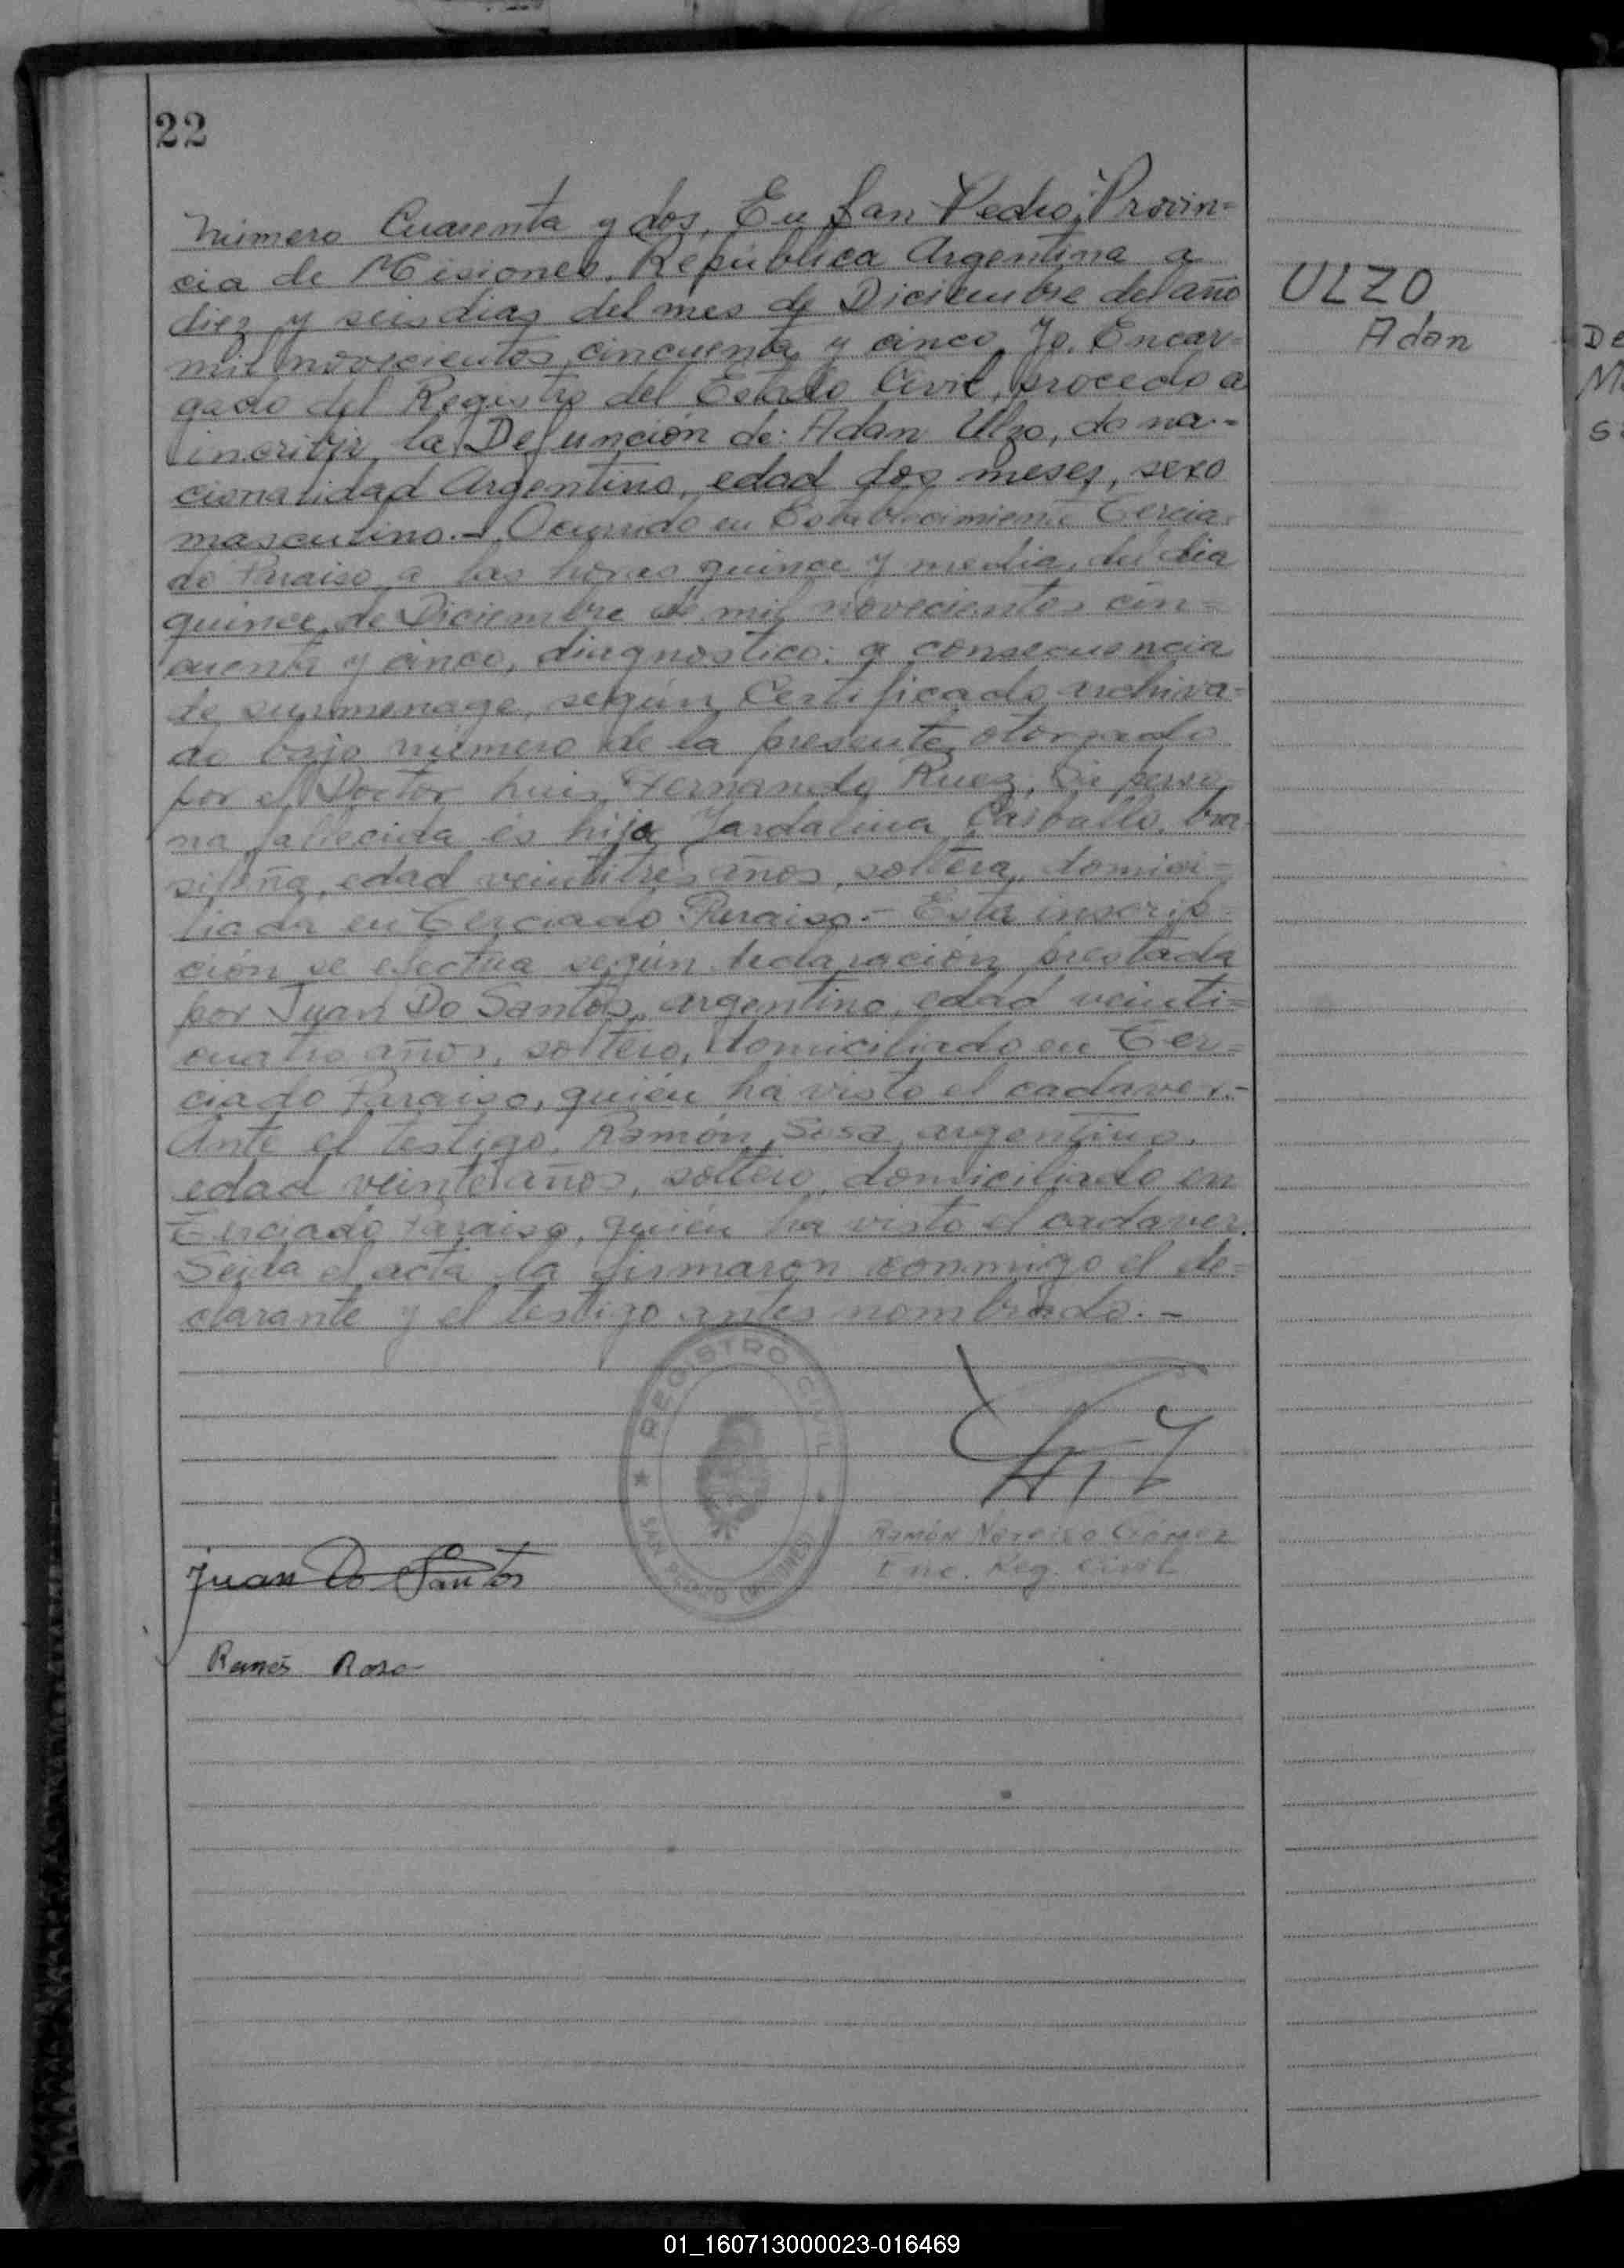 22
Número Cuarenta y dos, En San Pedro, Provin=
cia de Misiones, República Argentina a
diez y seis dias del mes de Diciembre del año
mil novecientos cincuenta y cinco, Yo, Encar=
gado del Registro del Estado Civil, procedo a
incribir, la Defunción de: Adan Ulzo, de na=
cionalidad Argentino, edad dos meses, sexo
masculino.- Ocurrido en Establecimiento Tercia=
do Paraiso a las horas quince y media, del dia
quince, de Diciembre de mil novecientos cin=
cuenta y cinco, diagnostico: a consecuencia
de surmenage, según Certificado archiva=
do bajo número de la presente, otorgado
por el Doctor Luis Fernandez Ruez, La perso=
na fallecida és hijo Jardalina Carballo, bra=
sileña, edad veintitrés años, soltera, domici=
liada en Terciado Paraiso.- Esta inscrip=
ción se efectua según declaración prestada
por Juan Do Santos, argentino, edad veinti=
cuatro años, soltero, domiciliado en Ter=
ciado Paraiso, quién há visto el cadaver.-
Ante el testigo, Ramón, Sosa, argentino,
edad veinte años, soltero, domiciliado en
Terciado Paraiso, quién ha visto el cadaver.
Leida el acta la firmaron conmigo el de=
clarante y el testigo antes nombrado.-
ULZO
Adan
REGISTRO CIVIL
SAN PEDRO (MISIONES)
Ramón Narciso Gómez
Enc. Reg. Civil
Juan Do Santos
Ramón
De
M
S
01_160713000023-016469